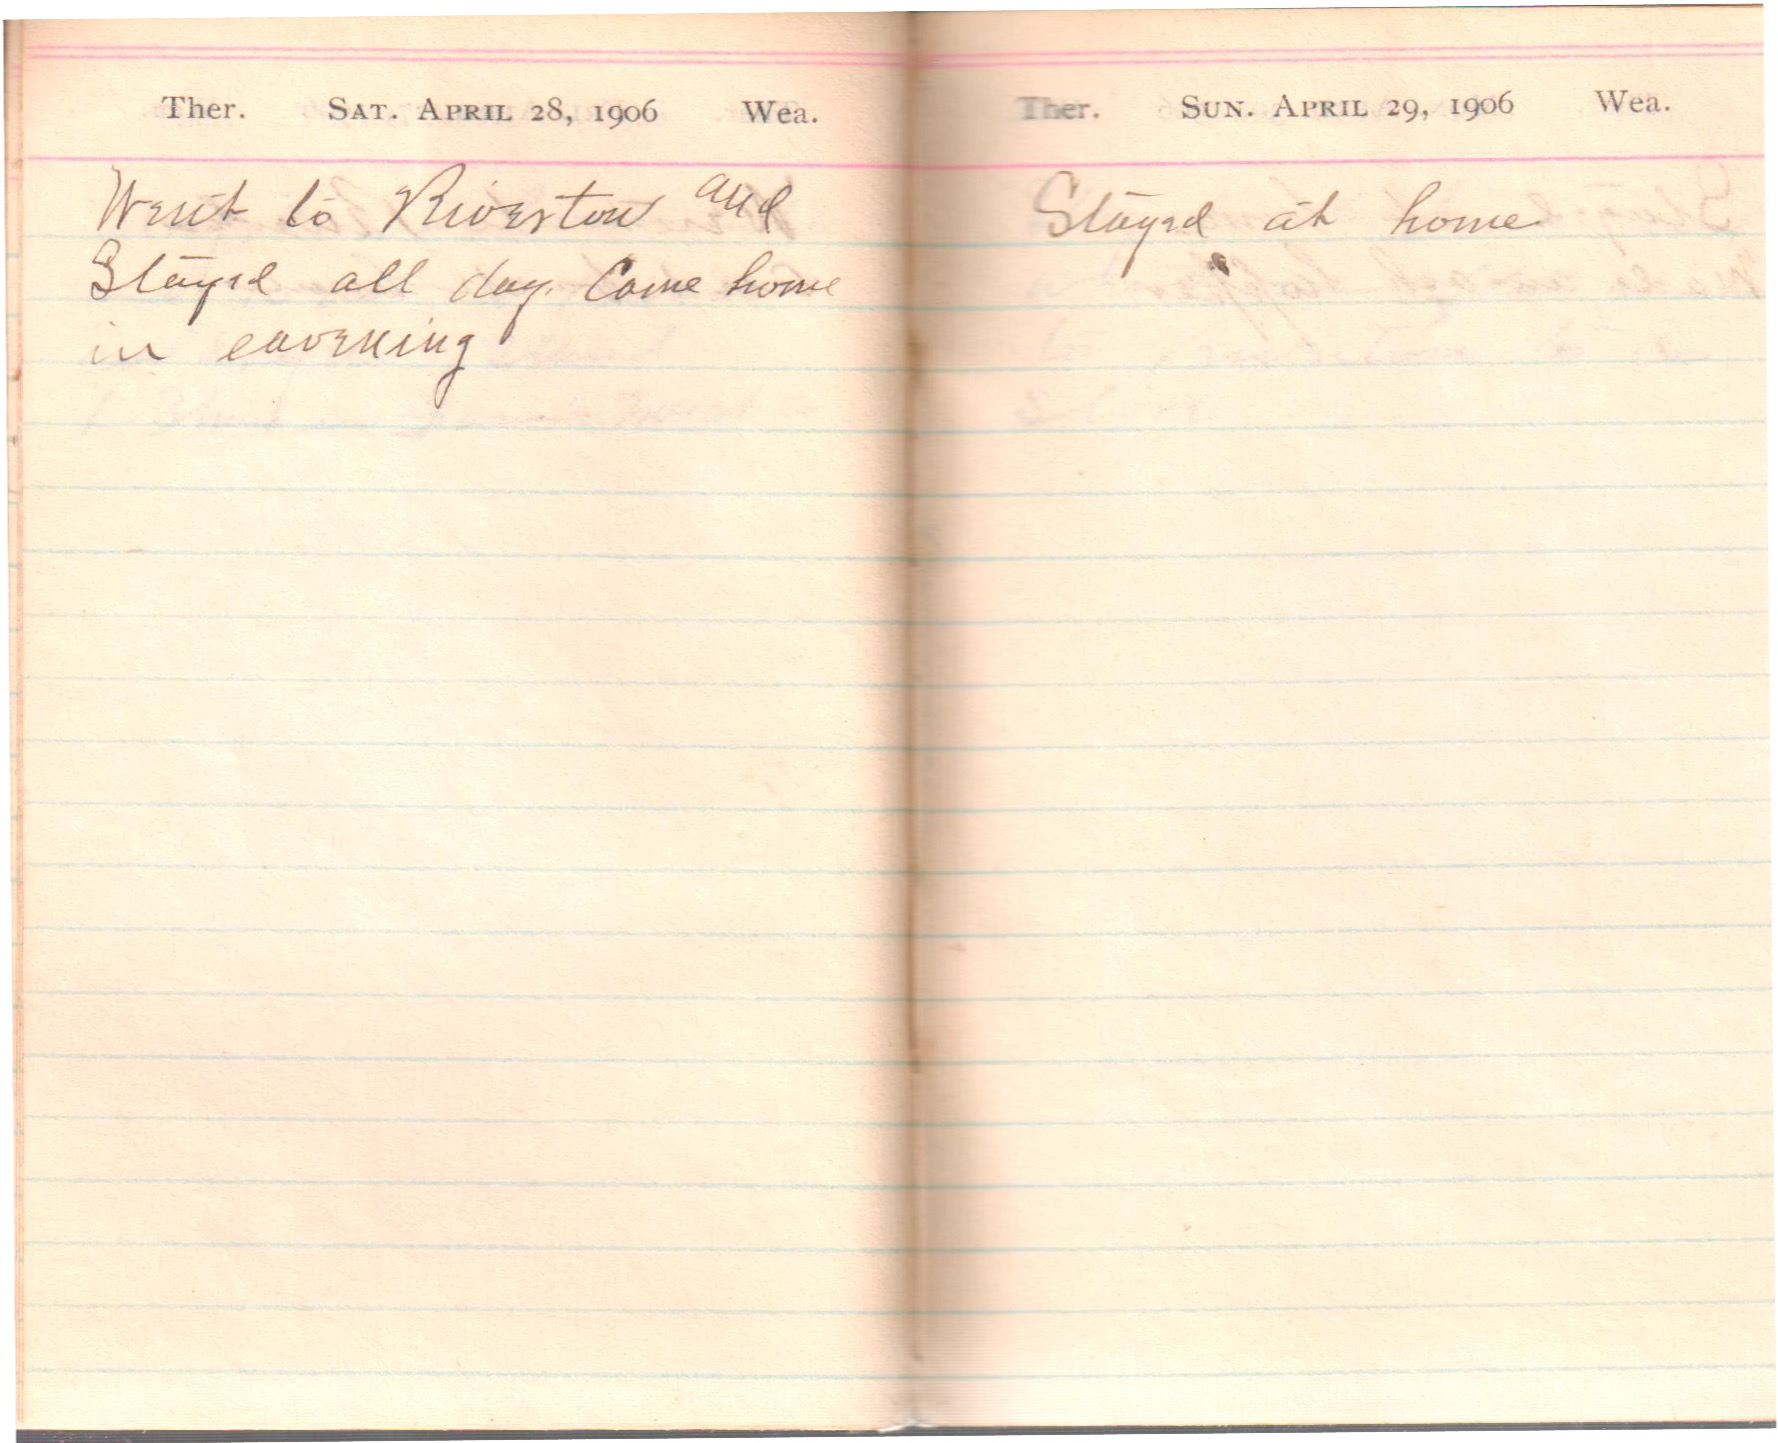 Ther. SAT. APRIL 28, 1906 Wea.
Went to Riverton and
Stayed all day. Come home
in eavening
Ther. SUN. APRIL 29, 1906 Wea.
Stayed at home